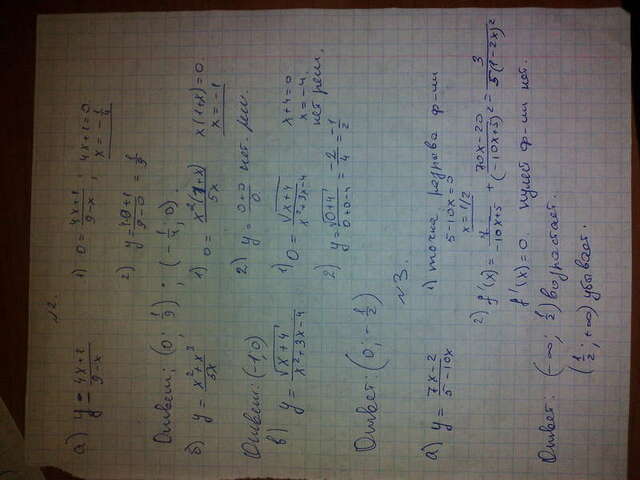 №2.
а) y = (4x+1)/(9-x) 1) 0 = (4x+1)/(9-x) ; 4x+1=0
x = -1/4
2) y = (4·0+1)/(9-0) = 1/9
Ответ: (0; 1/9) ; (-1/4; 0).
б) y = (x²+x³)/5x 1) 0 = x²(1+x)/5x x(1+x)=0
x = -1
2) y = (0+0)/0 нет. реш.
Ответ: (-1,0)
в) y = √(x+4)/(x²+3x-4) 1) 0 = √(x+4)/(x²+3x-4) x+4=0
x=-4
нет реш.
2) y = √(0+4)/(0+0-4) = -2/4 = -1/2
Ответ: (0; -1/2)
№3.
а) y = (7x-2)/(5-10x) 1) точка разрыва ф-ии
5-10x=0
x=1/2
2) f'(x) = 7/(-10x+5) + (70x-20)/(-10x+5)² = 3/(5(1-2x)²)
f'(x)=0. нулей ф-ии нет.
Ответ: (-∞; 1/2) возрастает.
(1/2; +∞) убывает.